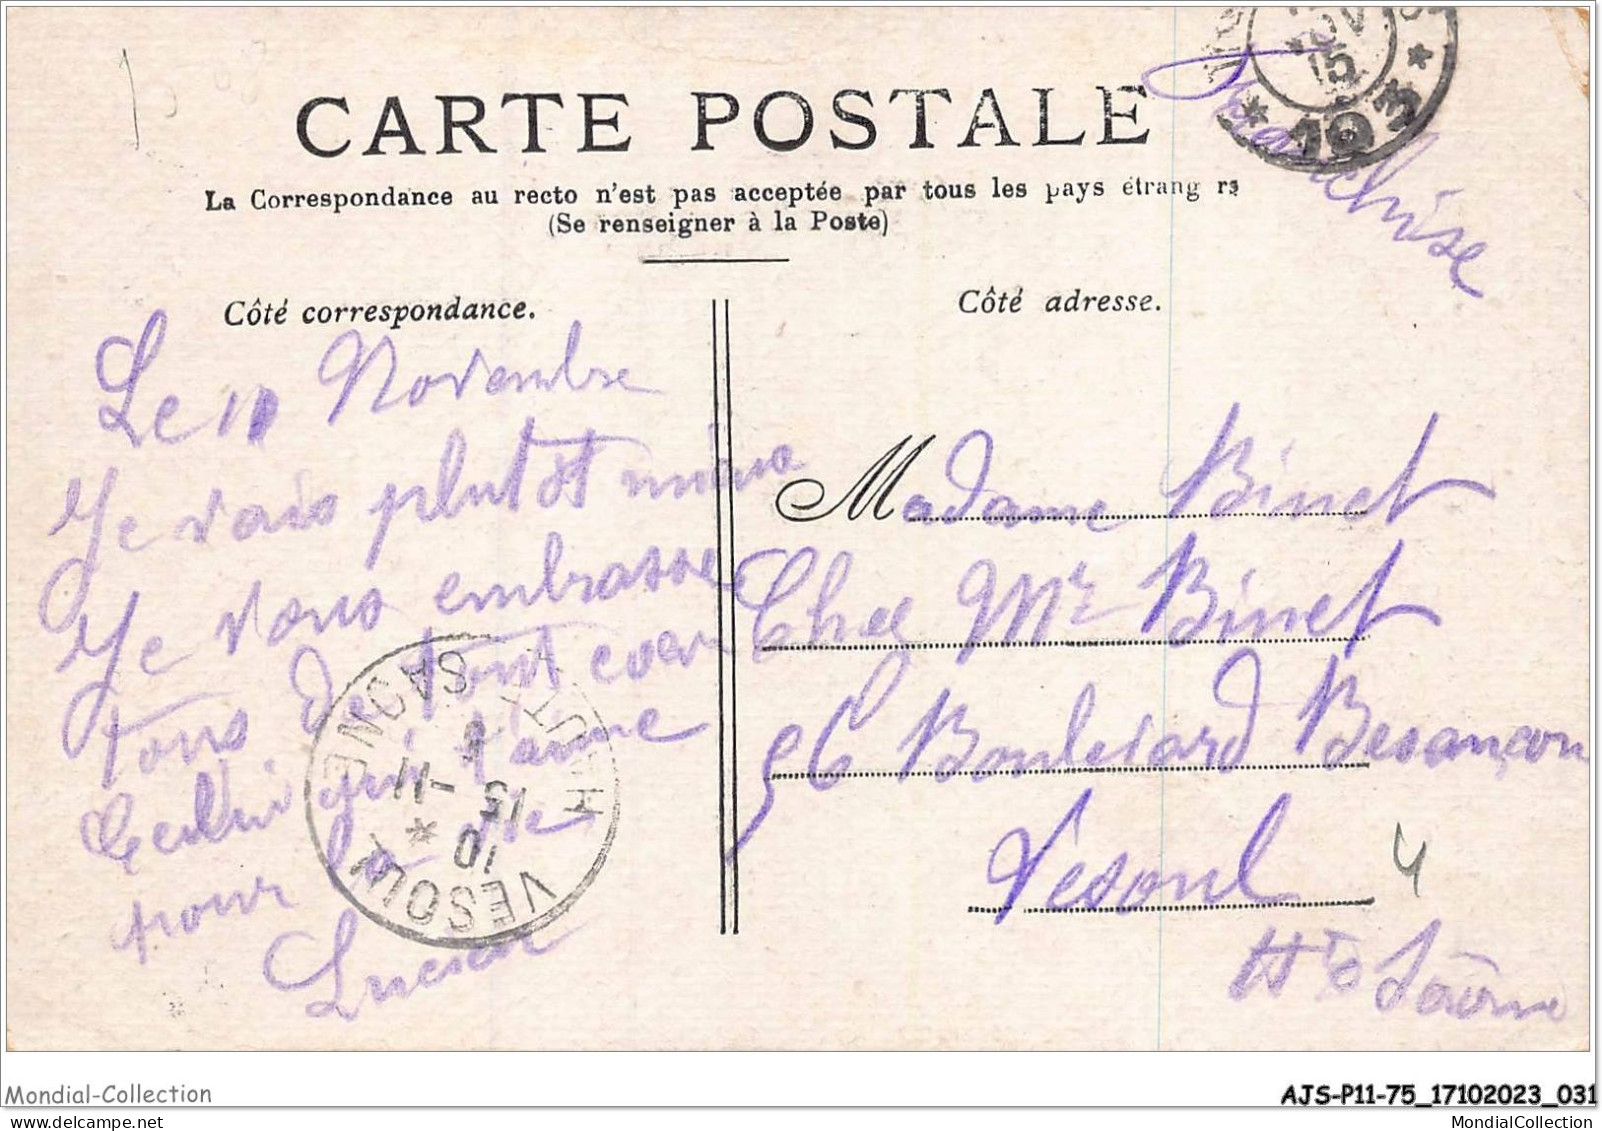 CARTE POSTALE
La Correspondance au recto n'est pas acceptée par tous les pays étrang rs
(Se renseigner à la Poste)
Franchise
15
103
Côté correspondance.
Le 11 Novembre
Je vais plutôt mieux
Je vous embrasse
tous de tout cœur
Celui qui t'aime
pour la vie
Lucien
VESOUL
HAUTE SAONE
10 - 11
15
Côté adresse.
Madame Binet
Chez Mr Binet
56 Boulevard Besançon
Vesoul
Hte Saône
4
Mondial-Collection
mondial-collection
AJS-P11-75_17102023_031
MondialCollection